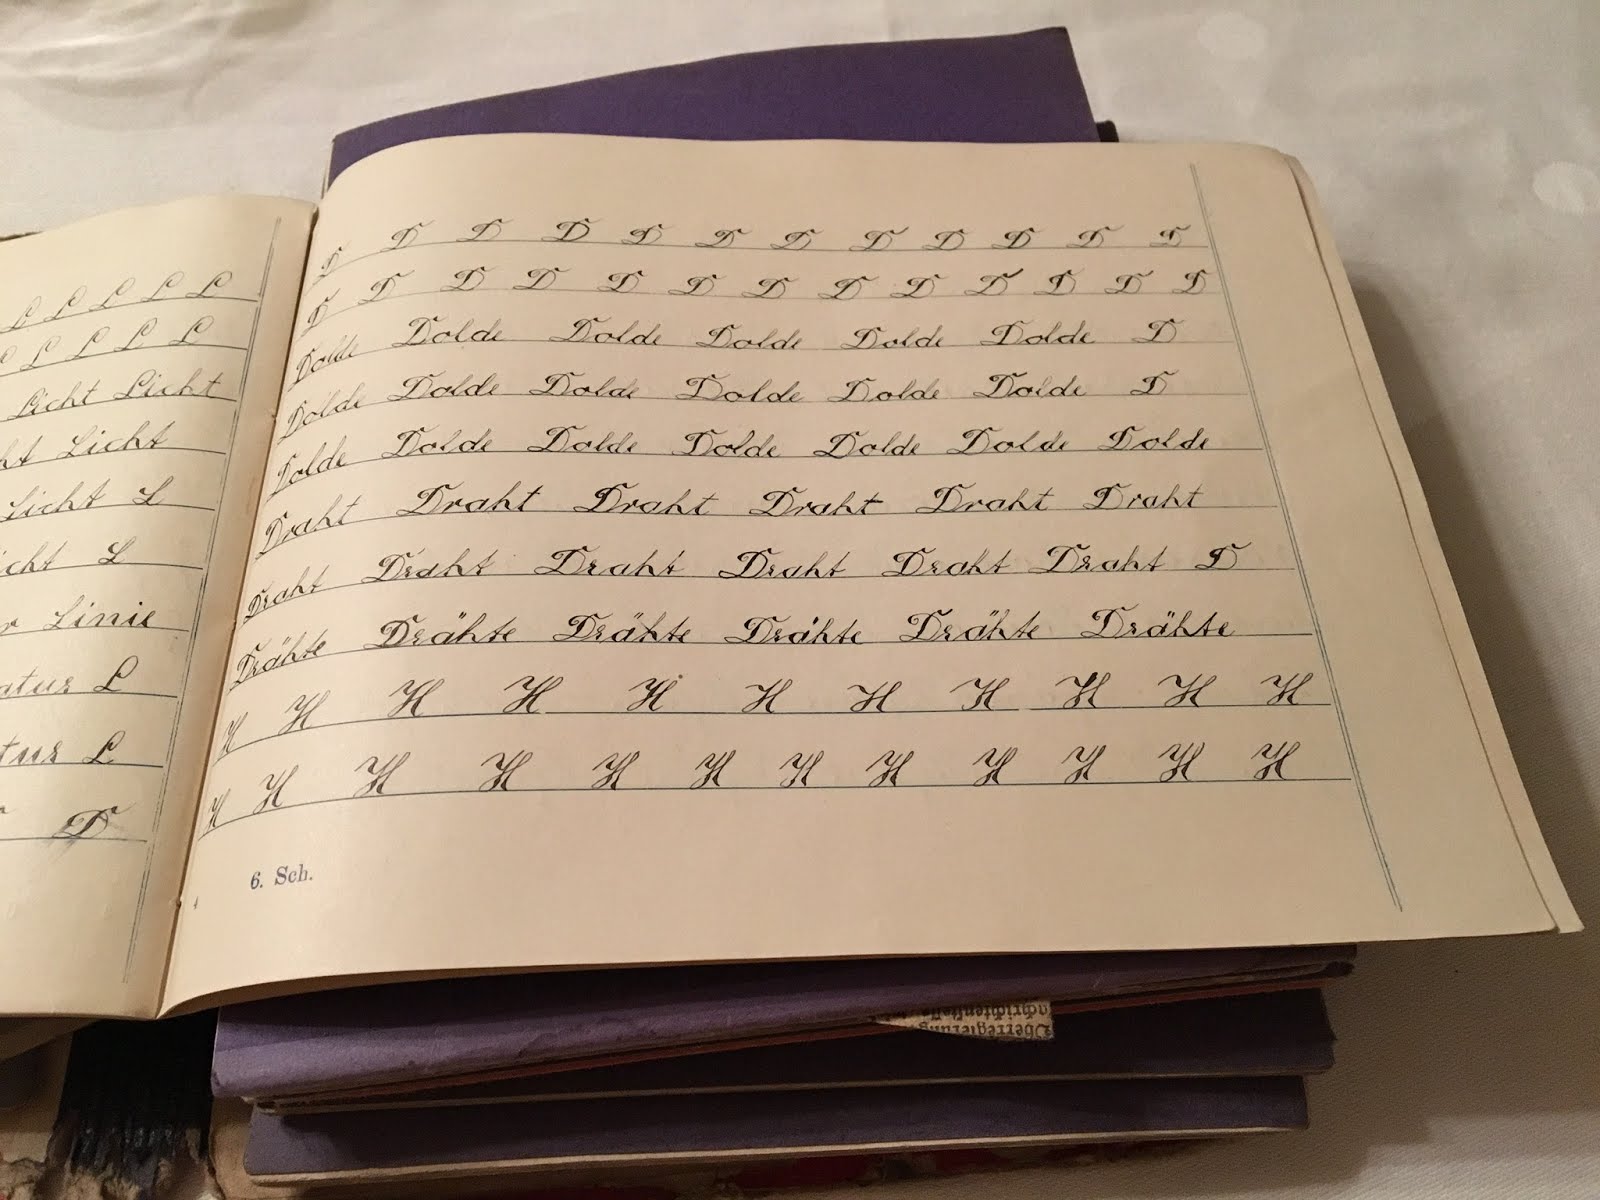 L L L L L
L L L L L
Licht Licht
ht Licht
Licht L
icht L
r Linie
atur L
tur L
D
D D D D D D D D D D D D
D D D D D D D D D D D D D
Dolde Dolde Dolde Dolde Dolde Dolde D
Dolde Dolde Dolde Dolde Dolde Dolde D
Dolde Dolde Dolde Dolde Dolde Dolde Dolde
Draht Draht Draht Draht Draht Draht
Draht Draht Draht Draht Draht Draht D
Drähte Drähte Drähte Drähte Drähte Drähte
H H H H H H H H H H H
H H H H H H H H H H H H
6. Sch.
Oberregierung